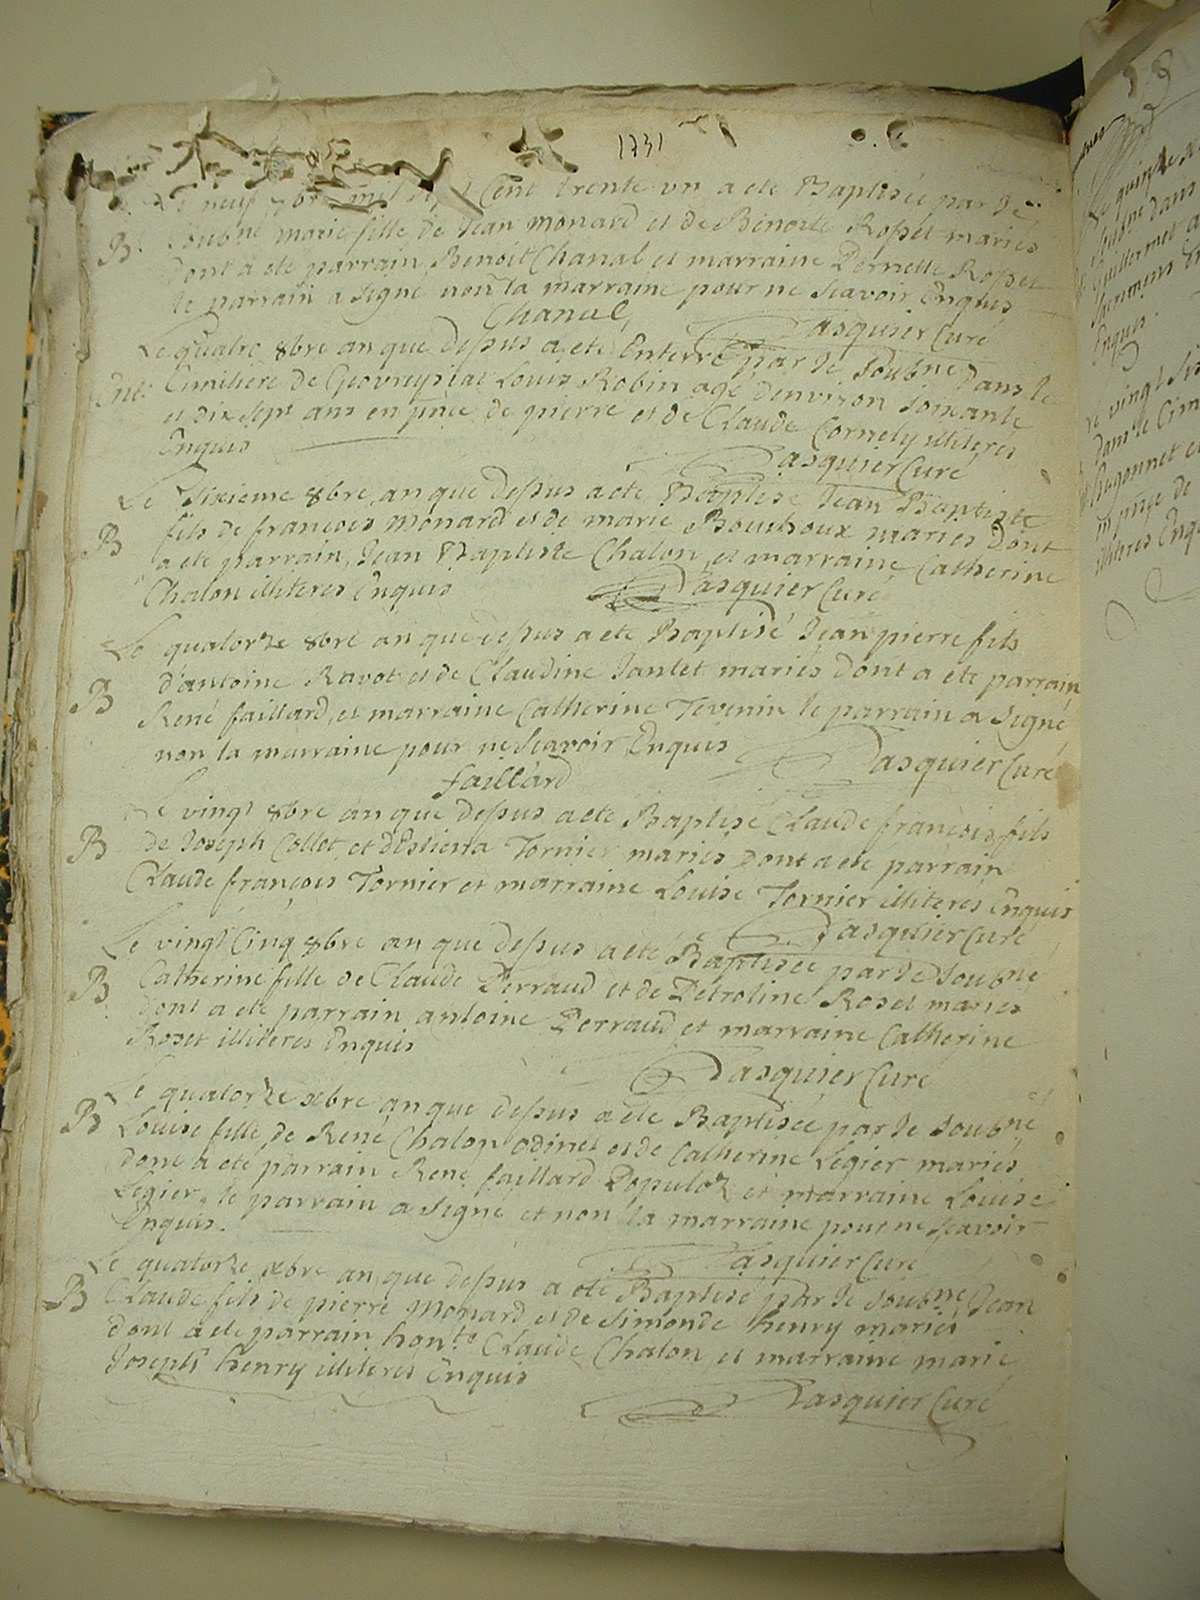 1731
Le neuf 7bre mil sept Cent trente un a ete Baptisée par Je
B. Soubné marie fille de Jean monard et de Benoite Rosset mariés
dont a ete parrain Benoit Chanal et marraine Pernette Rosset
le parrain a signé non la marraine pour ne scavoir Enquis
Chanal Pasquier Curé
Le quatre 8bre an que dessus a eté Enterré par Je Soubné dans le
Ent. Cimitiere de Geovreysiat Louis Robin agé denviron soixante
et dix sept ans en pnce de pierre et de Claude Cornely illiterés
Enquis
Pasquier Curé
Le sixieme 8bre an que dessus a ete Baptisé Jean Baptiste
B fils de francois monard et de marie Bouchoux mariés Dont
a ete parrain Jean Baptiste Chalon et marraine Catherine
Chalon illiteres Enquis Pasquier Curé
Le quatorze 8bre an que dessus a eté Baptisé Jean pierre fils
d'antoine Ravot et de Claudine Jantet mariés dont a ete parrain
B René faillard et marraine Catherine Tevenin le parrain a signé
non la marraine pour ne scavoir Enquis Pasquier Curé
faillard
Le vingt 8bre an que dessus a ete Baptisé Claude francois fils
B de Joseph Collet et dEstiena Tornier mariés Dont a ete parrain
Claude françois Tornier et marraine Louise Tornier illiteres Enquis
Pasquier Curé
Le vingt Cinq 8bre an que dessus a eté Baptisée par Je Soubné
B Catherine fille de Claude Perraud et de Petroline Roset mariés
dont a ete parrain antoine Perraud et marraine Catherine
Roset illiteres Enquis
Pasquier Curé
Le quatorze xbre an que dessus a eté Baptisée par Je soubné
B Louise fille de René Chalon odinet et de Catherine Legier mariés
dont a ete parrain René faillard Populoz et marraine Louise
Legier le parrain a signe et non la marraine pour ne scavoir
Enquis.
Pasquier Curé
Le quatorze xbre an que dessus a eté Baptisé par Je soubné Jean
B Claude fils de pierre monard et de Simonde henry mariés
dont a ete parrain hon.te Claude Chalon et marraine marie
Joseph henry illiteres Enquis
Pasquier Curé
Le quinze
Soubné dans
guillermet a
sacremens En
Enquis.
Le vingt six
Dans le Cim
Hugonnet et
en pnce de
illiteres Enq